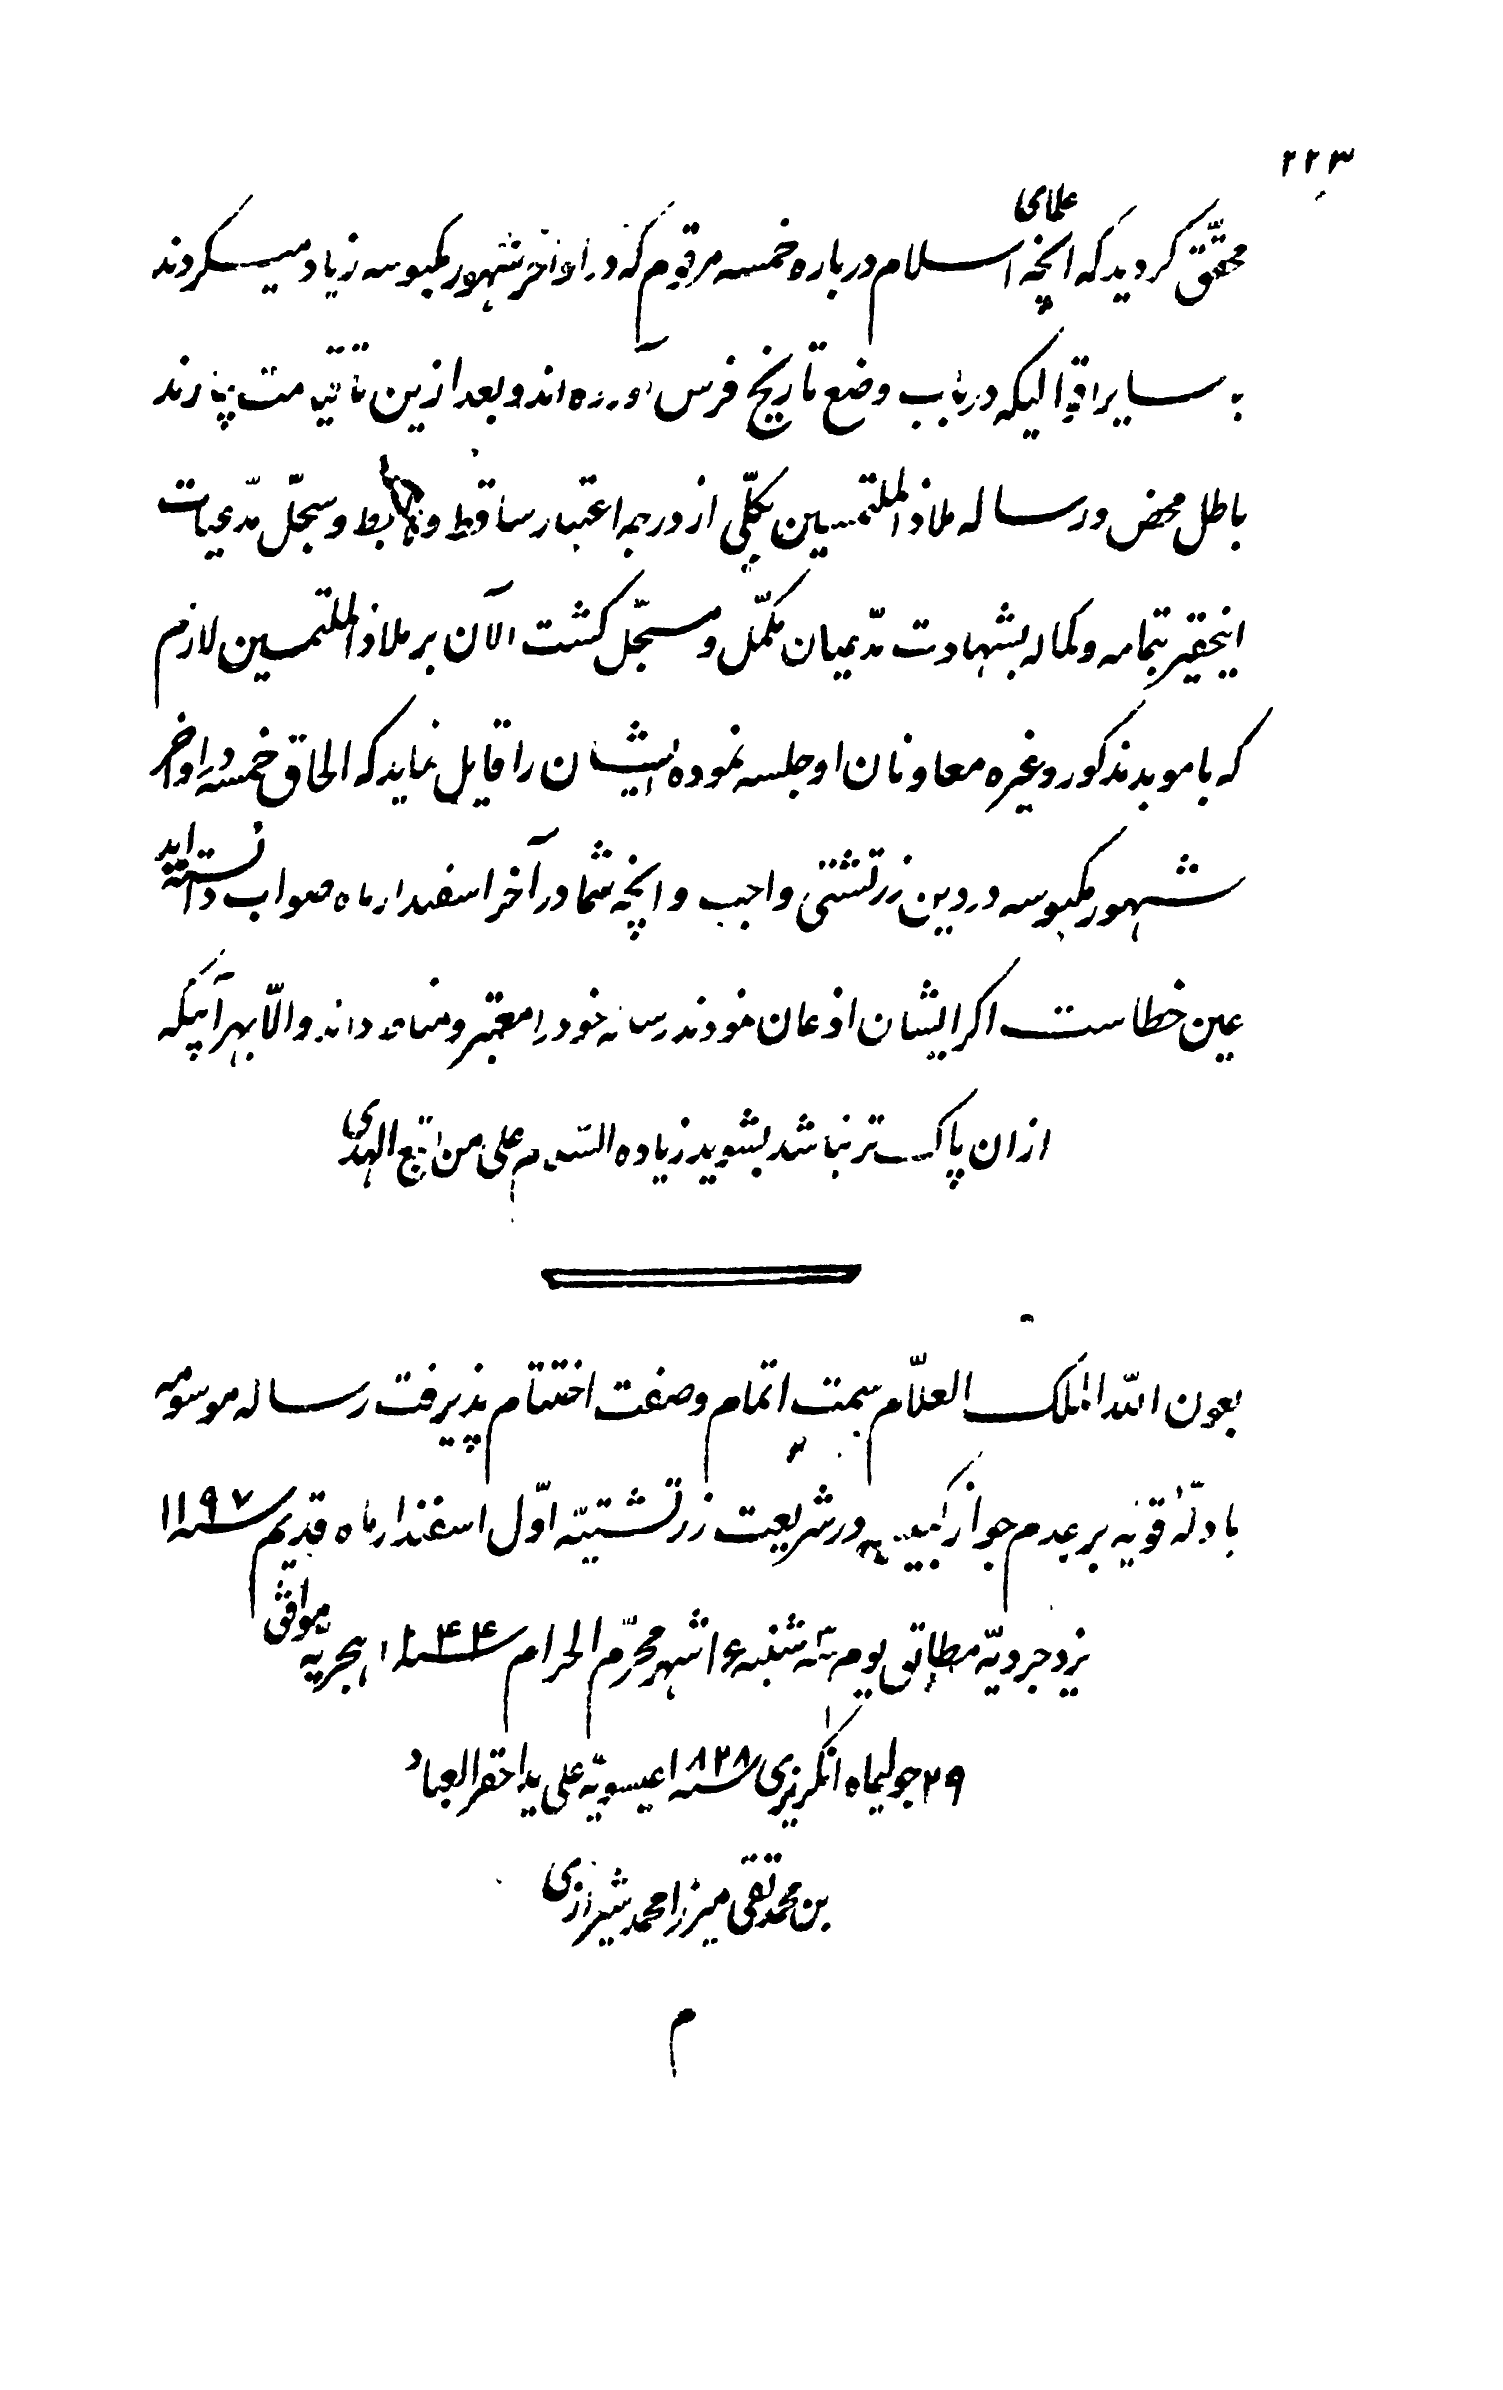 ۲۲۳
محقّق کردید که انچه علمای اسلام درباره خمسه مرقوم که در اواخر شهور مکبوسه زیاد میکردند
با سایر اقوالیکه در باب وضع تاریخ فرس آورده‌اند و بعد ازین تا قیامت بیارند
باطل محض و رساله ملاذ الملتمسین بکلّی از درجه اعتبار ساقط و هابط و سجلّ مدّعیات
اینحقیر بتمامه و کماله بشهادت مدّعیان مکمّل و مسجّل کشت الآن بر ملاذ الملتمسین لازم
که با موبد مذکور و غیره معاونان او جلسه نموده ایشان را قایل نماید که الحاق خمسه در اواخر
شهور مکبوسه در دین زرتشتی واجب و انچه شما در آخر اسفندارماه صواب دانسته‌اید
عین خطاست اکر ایشان اذعان نمودند رساله خود را معتبر و مناط دانند والّا بهر آبیکه
ازان پاک تر نباشد بشوید زیاده السّلام علی من اتبع الهدی
بعون اللّه الملک العلّام سمت اتمام و صفت اختتام پذیرفت رساله موسومه
بادلّه قویه بر عدم جواز کبیسه در شریعت زرتشتیّه اوّل اسفندارماه قدیم سنه ۱۱۹۷
یزدجردیّه مطابق یوم سه شنبه ۱۶ شهر محرّم الحرام سنه ۱۲۴۴ هجریّه موافق
۲۹ جولیماه انکریزی سنه ۱۸۲۸ عیسویّه علی ید احقر العباد
بن محمد تقی میرزا محمد شیرازی
م